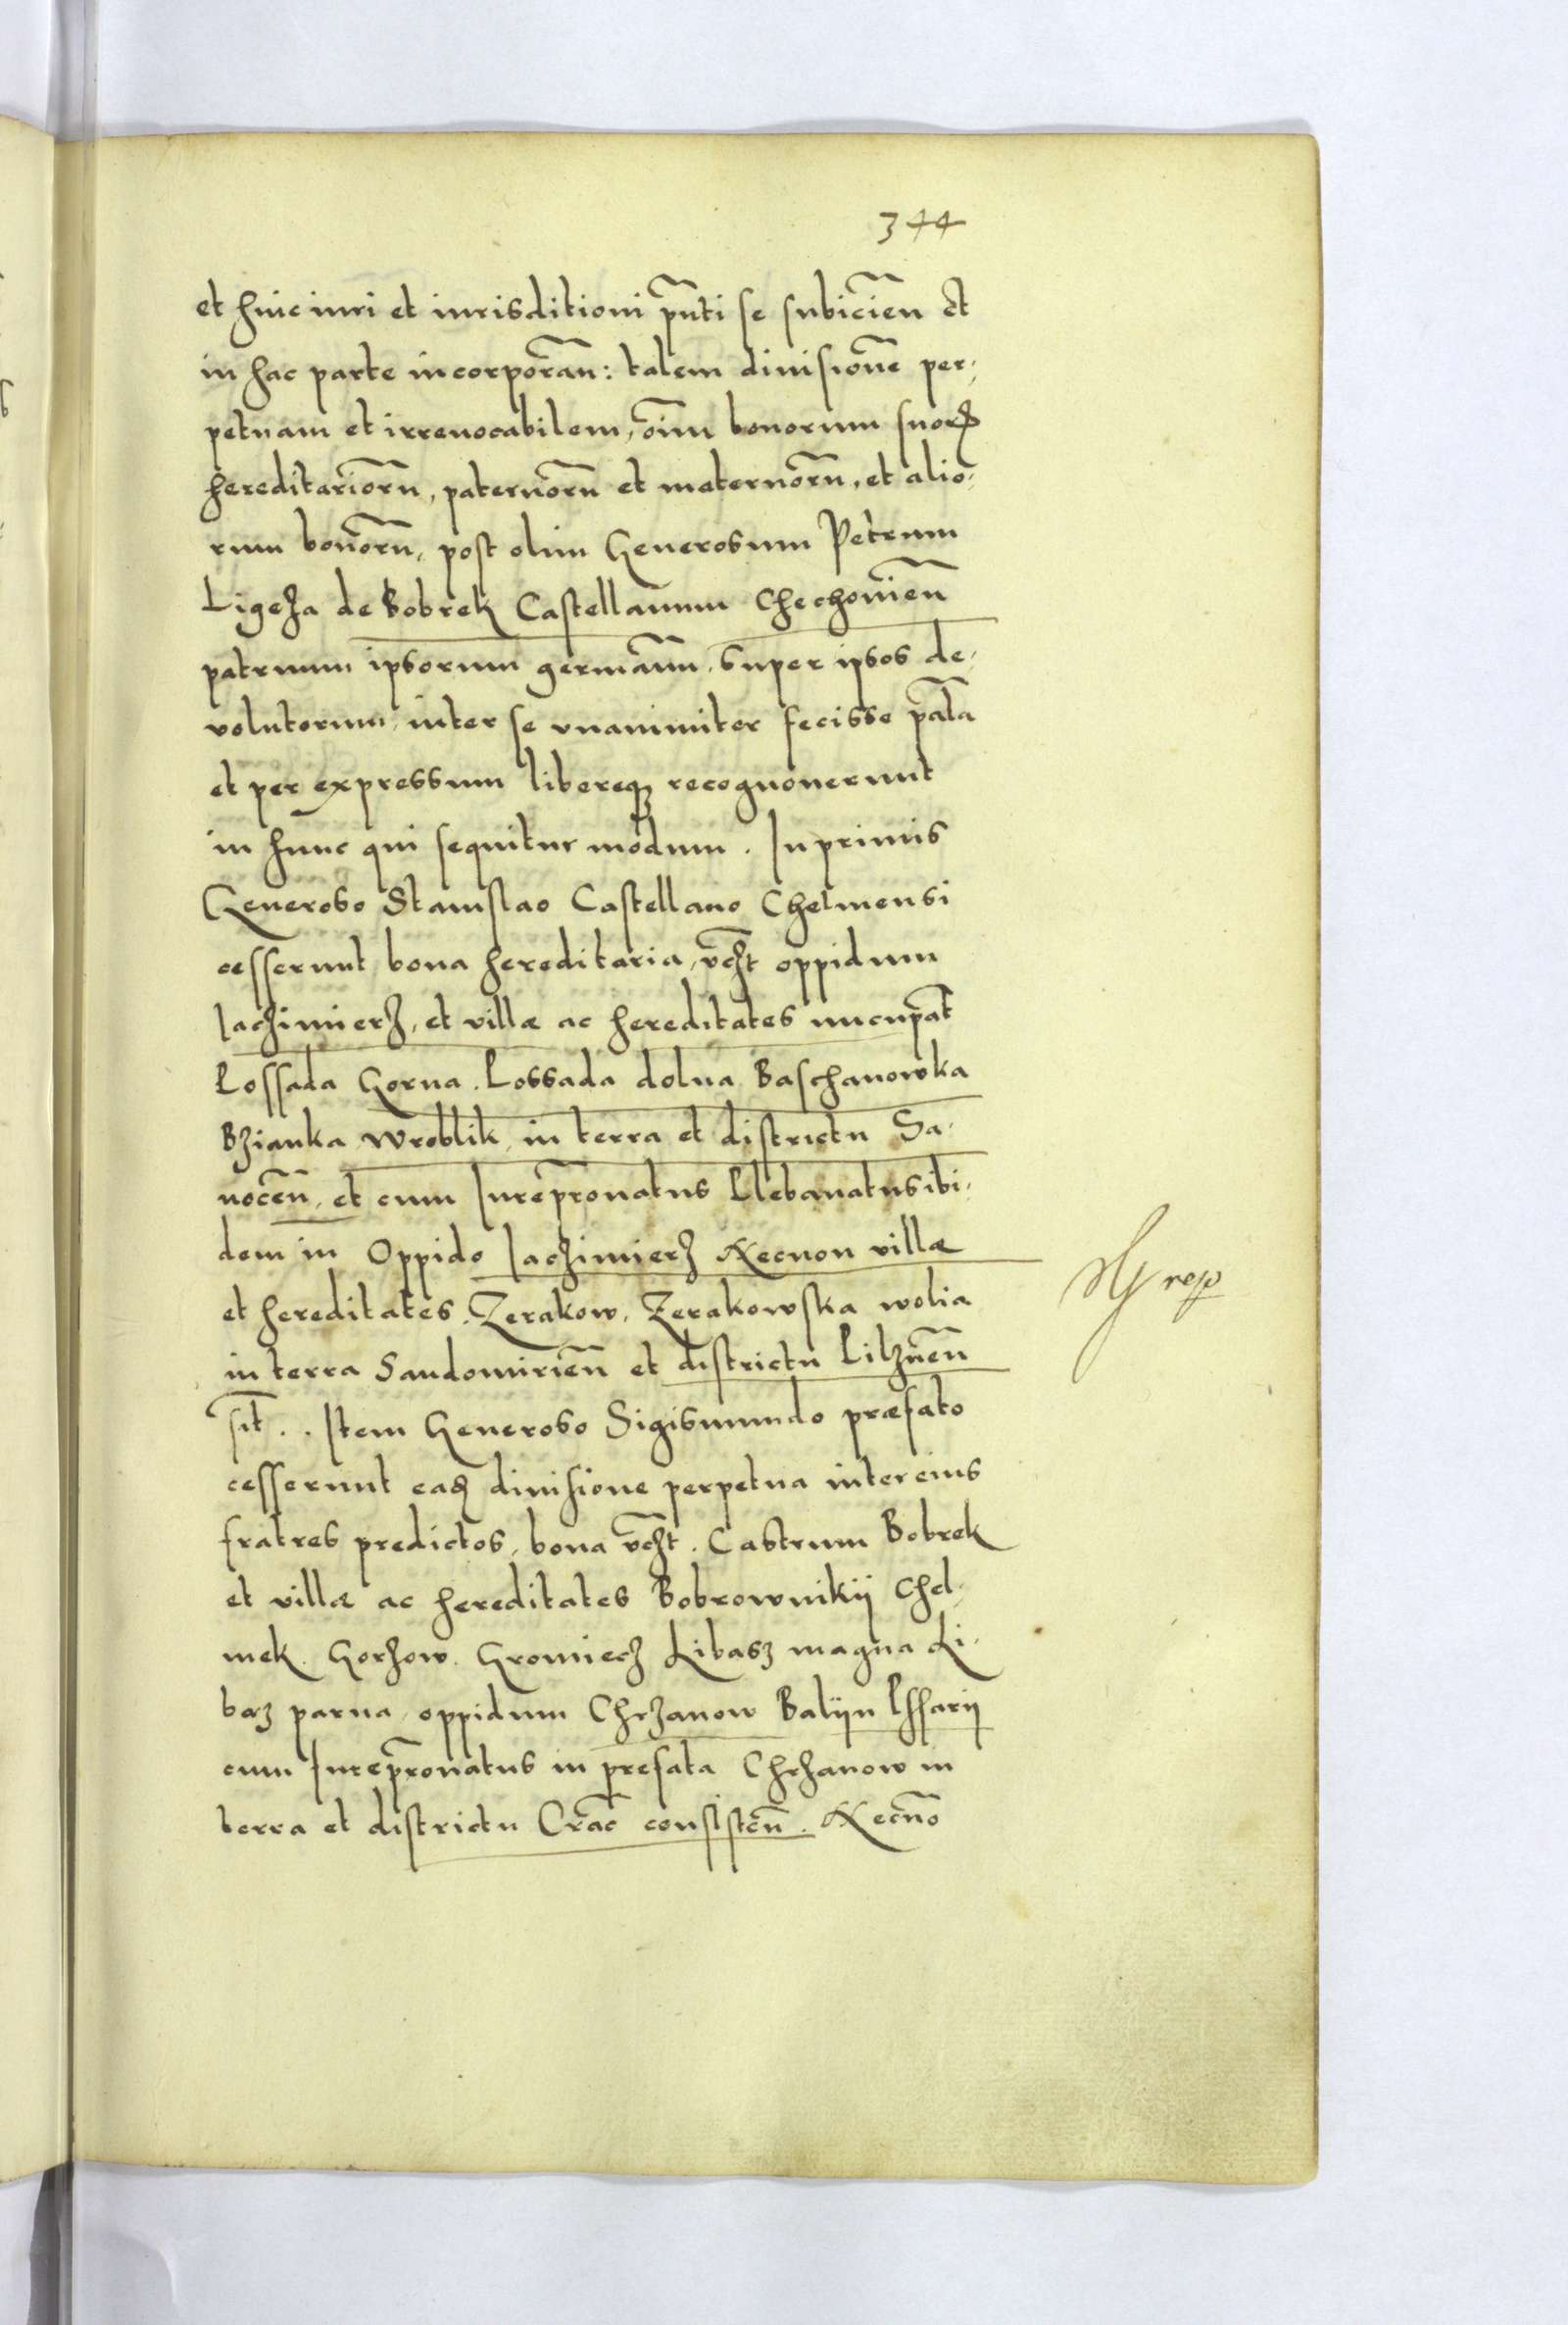 344
et huic iuri et iurisditioni pnti se subicien et
in hac parte incorporan: talem diuisione per-
petuam et irreuocabilem, oim bonorum suorum
hereditariorn, paternorn et maternorn, et alio-
rum bonorn, post olim Generosum Petrum
Ligeza de Bobrek Castellanum Chechouien
patruum ipsorum germanu. Super ipsos de-
volutorum, inter se vnanimiter fecisse pala
et per expressum libereq recognouerunt
in hunc qui sequitur modum. Inprimis
Generoso Stanislao Castellano Chelmensi
cesserunt bona hereditaria, vcht oppidum
Iaczimierz, et villæ ac hereditates nucupat
Possada Gorna. Possada dolna Baschanowka
Bzianka Wroblik, in terra et districtu Sa-
nocen, et cum Iurepronatus Plebanatus ibi-
dem in Oppido Iaczimierz Necnon villæ
et hereditates. Zerakow, Zerakowska wolia
in terra Sandomirien et districtu Pilznen
sit.. Item Generoso Sigismundo præfato
cesserunt eadem diuisione perpetua inter eius
fratres predictos, bona vcht. Castrum Bobrek
et villæ ac hereditates Bobrownikij Chel-
mek. Gorzow. Gromiecz Libasz magna Li-
basz parua, oppidum Chrzanow Balijn Pssarij
cum Iurepronatus in prefata Chrzanow in
terra et districtu Crac consisten. Necno